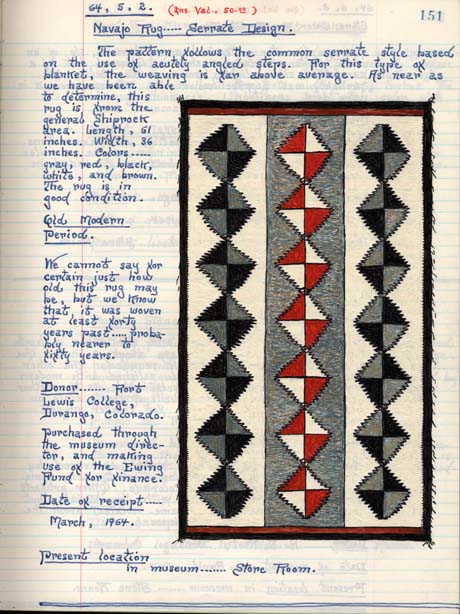 64, 5, 2. (Ins. Val., 50.00)
151
Navajo Rug..... Serrate Design.
The pattern follows the common serrate style based
on the use of acutely angled steps. For this type of
blanket, the weaving is far above average. As near as
we have been able
to determine, this
rug is from the
general Shiprock
area. Length, 61
inches. Width, 36
inches. Colors.....
gray, red, black,
white, and brown.
The rug is in
good condition.
Old Modern
Period.
We cannot say for
certain just how
old this rug may
be, but we know
that it was woven
at least forty
years past..... proba-
bly nearer to
fifty years.
Donor....... Fort
Lewis College,
Durango, Colorado.
Purchased through
the museum direc-
tor, and making
use of the Ewing
Fund for finance.
Date of receipt.....
March, 1964.
Present location
in museum....... Store Room.